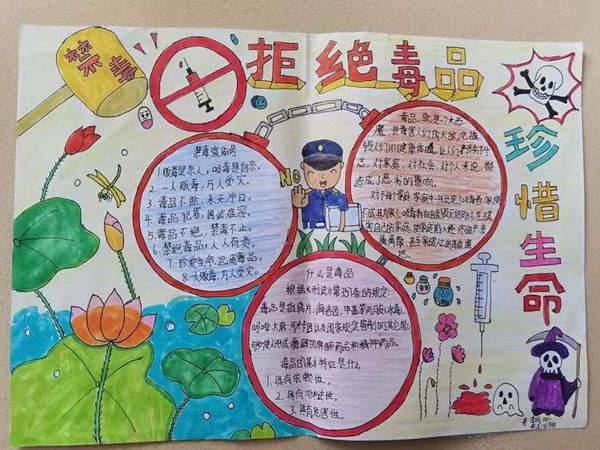 禁毒
拒绝毒品
珍惜生命
禁毒宣传吗
1.吸毒是杀人，吸毒是自杀。
2.一人吸毒，万人受灾。
3.毒品不除，永无宁日。
4.毒品犯罪，国法难容。
5.毒品不绝，禁毒不止。
6.禁绝毒品，人人有责。
7.珍爱生命，远离毒品。
8.一人吸毒，万人受灾。
NO
毒品，就是个大恶
魔，是毒害人们的天敌，它摧
毁人们的健康体魄，让人们丧失斗
志，对家庭，对社会，对个人来说，都
造成了恶劣的影响。
什么是毒品
根据《刑法》第357条的规定：
毒品是指鸦片，海洛因，甲基苯丙胺（冰毒）
吗啡，大麻，可卡因以及国家规定管制的其它能
够使人形成瘾癖的麻醉药品和精神药品。
毒品的基本特征是什么
1.具有依赖性。
2.具有非法性。
3.具有危害性。